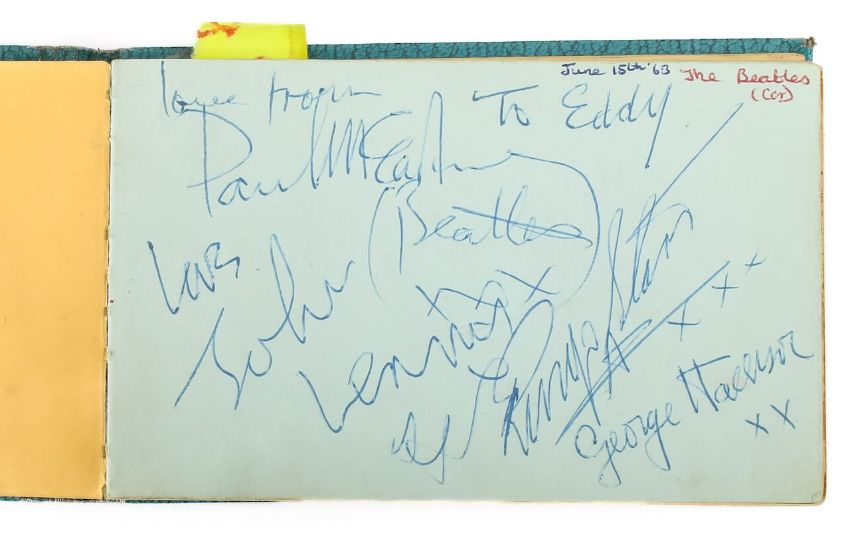 June 15th '63 The Beatles
(Cor)
love from
To Eddy
Paul McCartney
(Beatles)
love
John
Lennon
xx
Ringo Starr
xxx
George Harrison
xx